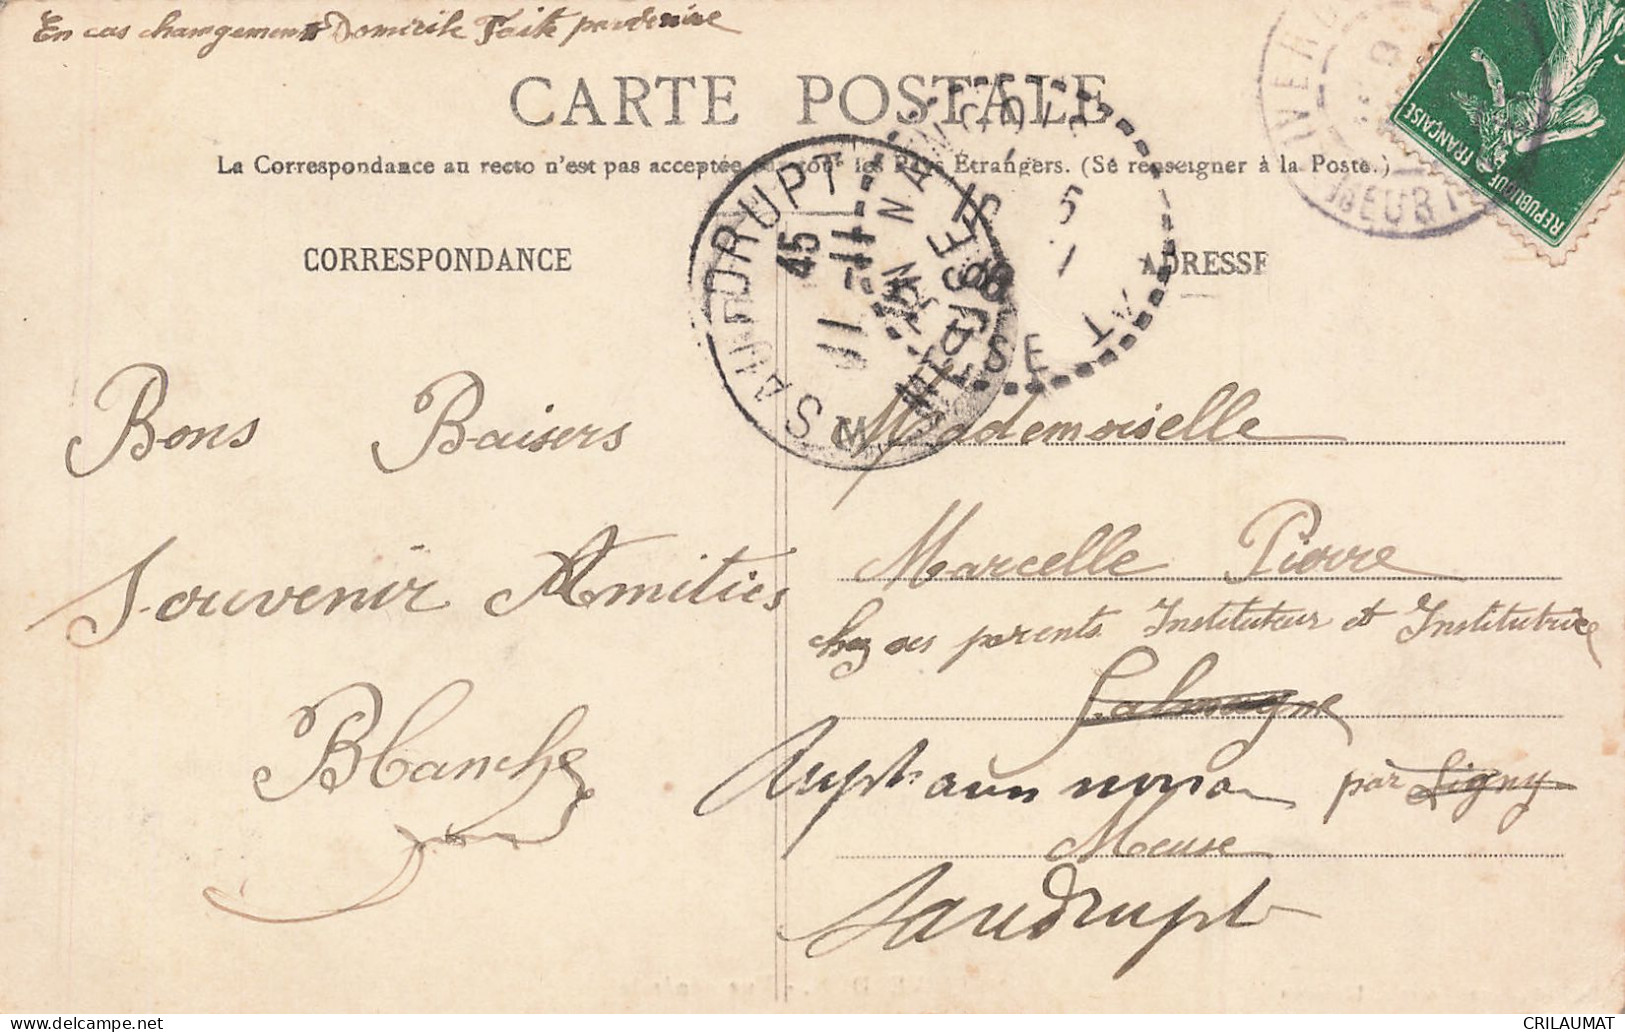 En cas changement Domicile Faite parvenire
CARTE POSTALE
La Correspondance au recto n'est pas acceptée par tous les Pays Étrangers. (Se renseigner à la Poste.)
CORRESPONDANCE
ADRESSE
REPUBLIQUE FRANÇAISE
SAUDRUPT
45
11
MEUSE
Bons Baisers
Souvenir Amitiés
Blanche
Mademoiselle
Marcelle Pierre
chez ses parents Instituteur et Institutrice
Salmagne
Rupt aux nonains par Ligny
Meuse
Saudrupt
CRILAUMAT